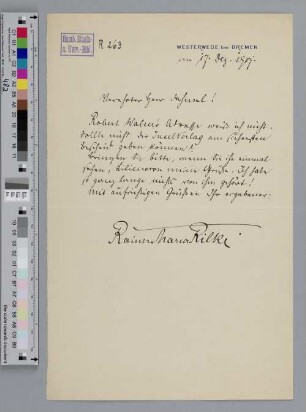 Hamb. Staats-
u. Univ.-Bibl.
R 263
WESTERWEDE bei BREMEN
am 17. Dez. 1901.
Verehrter Herr Dehmel!
Robert Walser's Adresse weiß ich nicht.
Sollte nicht der Insel Verlag am sichersten
Bescheid geben können?
Bringen Sie bitte, wenn Sie ihn einmal
sehen, Liliencron meine Grüße. Ich habe
so ganz lange nichts von ihm gehört!
Mit aufrichtigen Grüßen Ihr ergebener:
Rainer Maria Rilke